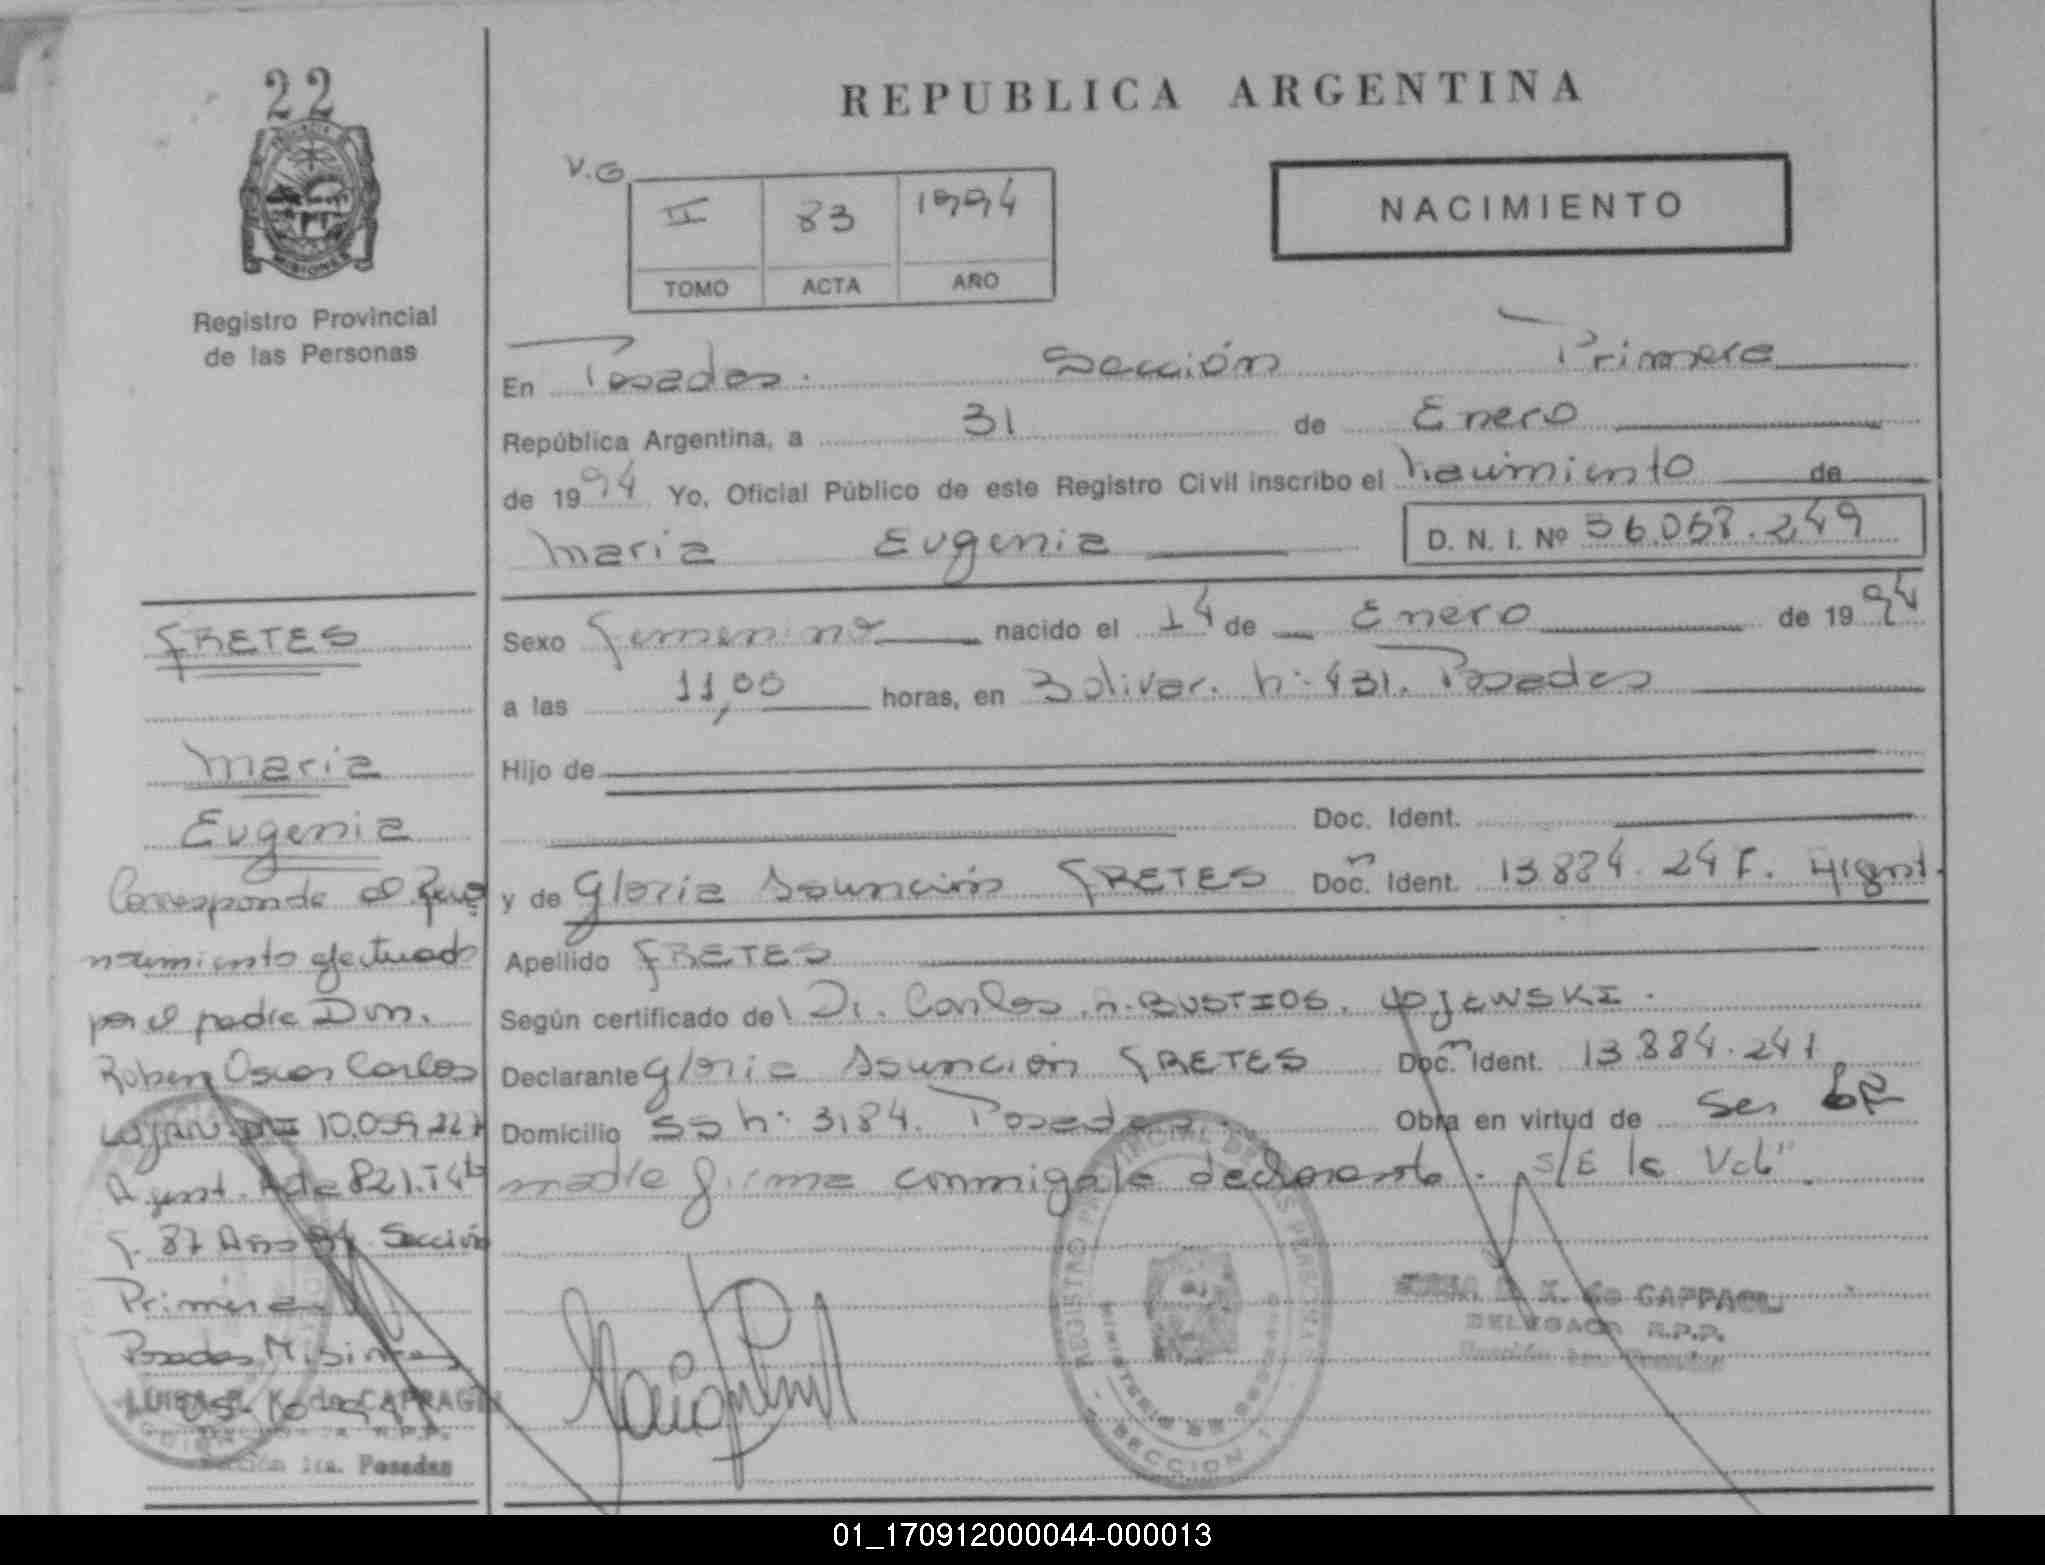 22
MISIONES
Registro Provincial
de las Personas
REPUBLICA ARGENTINA
V.G
II 83 1994
TOMO ACTA AÑO
NACIMIENTO
En Posadas. Sección Primera
República Argentina, a 31 de Enero
de 1994 Yo, Oficial Público de este Registro Civil inscribo el nacimiento de
Maria Eugenia D. N. I. Nº 36.058.249
Sexo Femenino nacido el 14 de Enero de 1994
a las 11,00 horas, en Bolivar. n: 431. Posadas
Hijo de
Doc. Ident.
y de Gloria Asunción FRETES Doc. Ident. 13.884.241. Argent.
Apellido FRETES
Según certificado del Dr. Carlos A. BUSTIOS.
Declarante Gloria Asunción FRETES Doc. Ident. 13.884.241
Domicilio 55 n: 3184. Posadas. Obra en virtud de Ser la
madre firma conmigo la declarante. S/E la Val"
FRETES
Maria
Eugenia
Corresponde al Reco
nocimiento efectuado
por el padre Don.
Ruben Oscar Carlos
DNI 10.059.227
Argent. Acta 821. T 4to
F. 87 Año 94 Sección
Primera
Posadas Misiones
LUISA K. de CAPPAGLI
R.P.P.
Sección 1ra. Posadas
REGISTRO PROVINCIAL DE LAS PERSONAS
MINISTERIO DE GOBIERNO
SECCION 1
K. de CAPPAGLI
DELEGADA R.P.P.
01_170912000044-000013